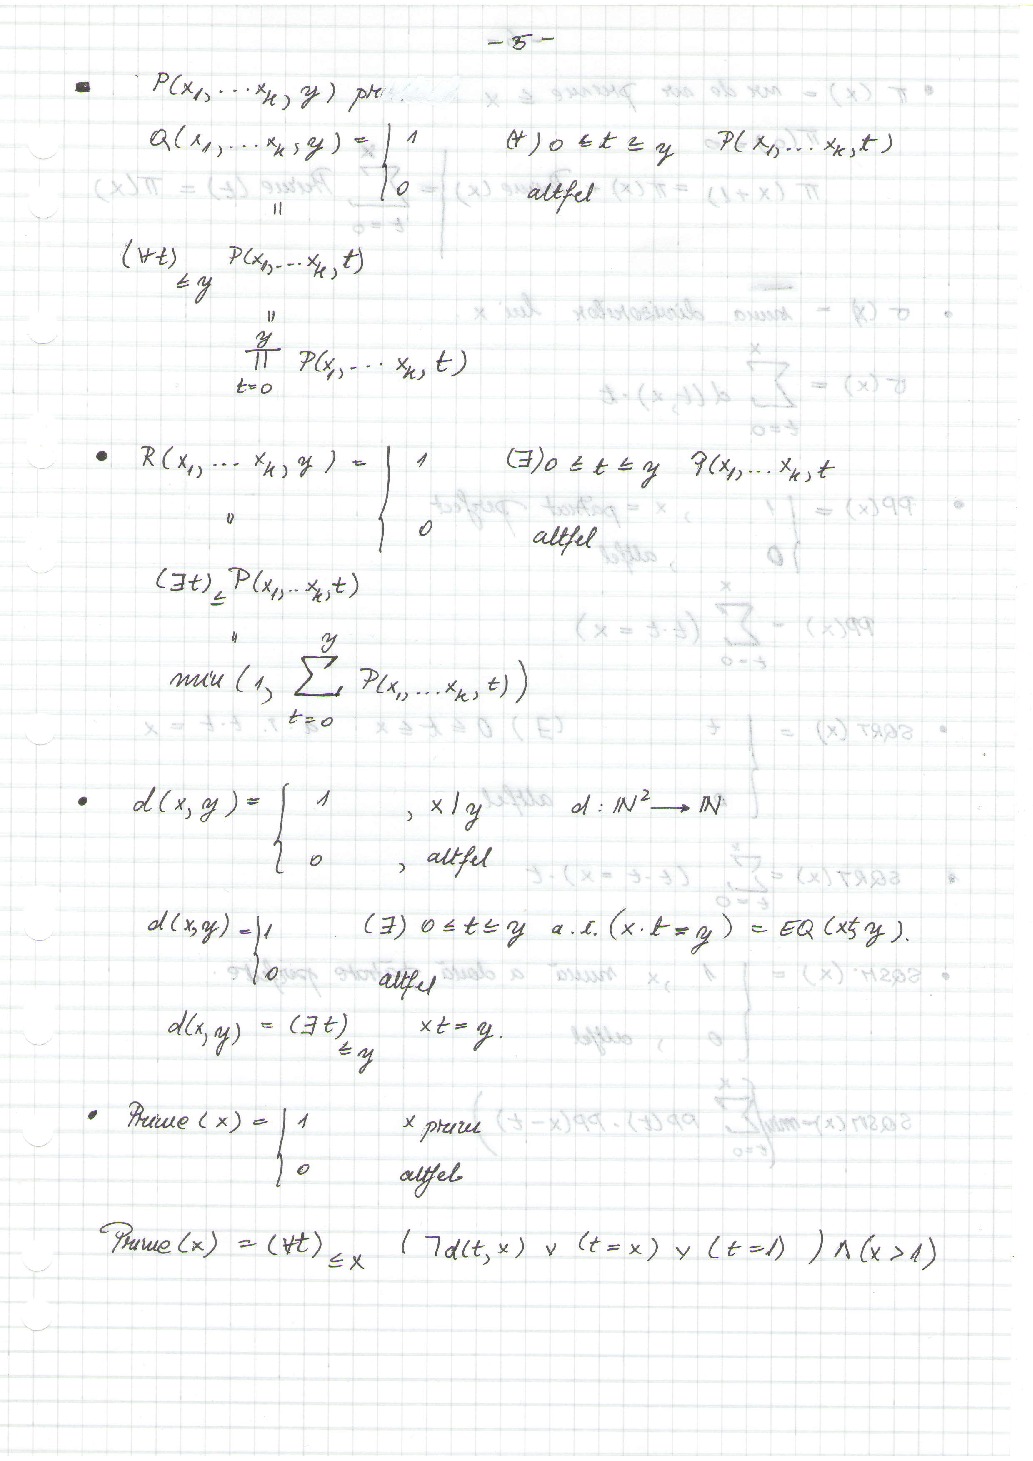 - 5 -
P(x₁, ... xₖ, y) pr.
Q(x₁, ... xₖ, y) = { 1 (∀) 0 ≤ t ≤ y P(x₁, ... xₖ, t)
0 altfel
=
(∀t)≤y P(x₁, ... xₖ, t)
=
y
∏ P(x₁, ... xₖ, t)
t=0
• R(x₁, ... xₖ, y) = { 1 (∃) 0 ≤ t ≤ y P(x₁, ... xₖ, t
0 altfel
=
(∃t)≤ P(x₁, .. xₖ, t)
=
y
min (1, ∑ P(x₁, ... xₖ, t))
t=0
• d(x, y) = { 1 , x | y d : ℕ² → ℕ
0 , altfel
d(x, y) = { 1 (∃) 0 ≤ t ≤ y a.î. (x · t = y) = EQ (xt, y).
0 altfel
d(x, y) = (∃t)≤y xt = y.
• Prime (x) = { 1 x prim
0 altfel
Prime (x) = (∀t)≤x (¬d(t, x) ∨ (t = x) ∨ (t = 1)) ∧ (x > 1)